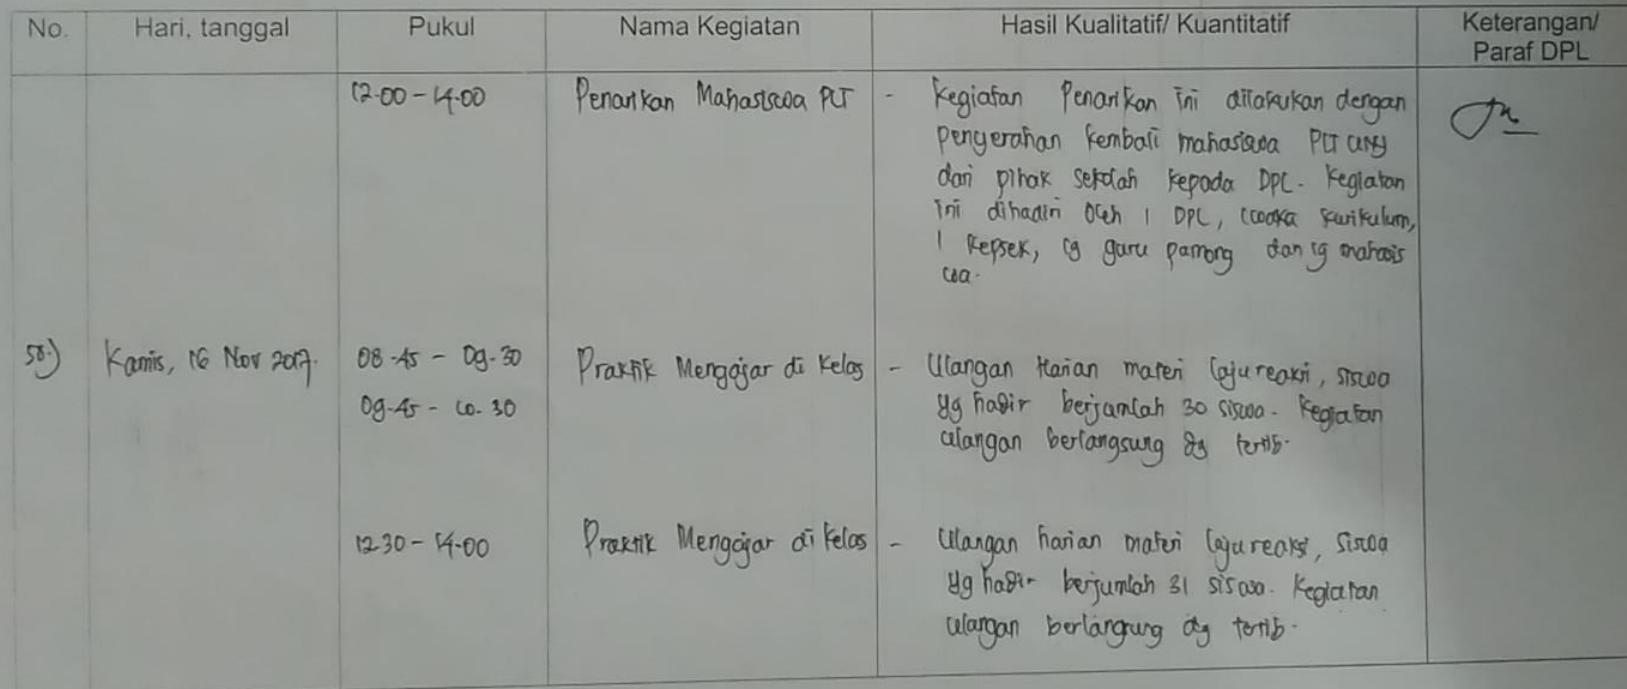 No. Hari, tanggal Pukul Nama Kegiatan Hasil Kualitatif/ Kuantitatif Keterangan/
Paraf DPL
12.00 - 14.00 Penarikan Mahasiswa PLT - Kegiatan Penarikan ini dilakukan dengan
penyerahan kembali mahasiswa PLT UNY
dari pihak sekolah kepada DPL. Kegiatan
ini dihadiri oleh 1 DPL, 1 waka kurikulum,
1 Kepsek, 19 guru pamong dan 19 mahasis
wa.
58.) Kamis, 16 Nov 2017. 08.45 - 09.30 Praktik Mengajar di Kelas - Ulangan Harian materi laju reaksi, siswa
09.45 - 10.30 yg hadir berjumlah 30 siswa. Kegiatan
ulangan berlangsung dg tertib.
12.30 - 14.00 Praktik Mengajar di Kelas - Ulangan harian materi laju reaksi, siswa
yg hadir berjumlah 31 siswa. Kegiatan
ulangan berlangsung dg tertib.